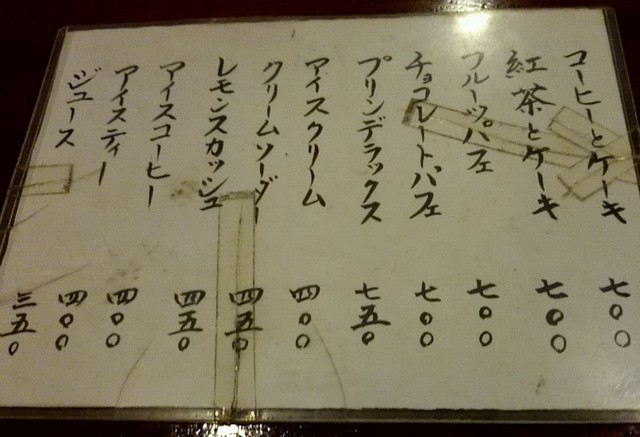 コーヒーとケーキ 七〇〇
紅茶とケーキ 七〇〇
フルーツパフェ 七〇〇
チョコレートパフェ 七〇〇
プリンデラックス 七五〇
アイスクリーム 四〇〇
クリームソーダー 四五〇
レモンスカッシュ 四五〇
アイスコーヒー 四〇〇
アイスティー 四〇〇
ジュース 三五〇